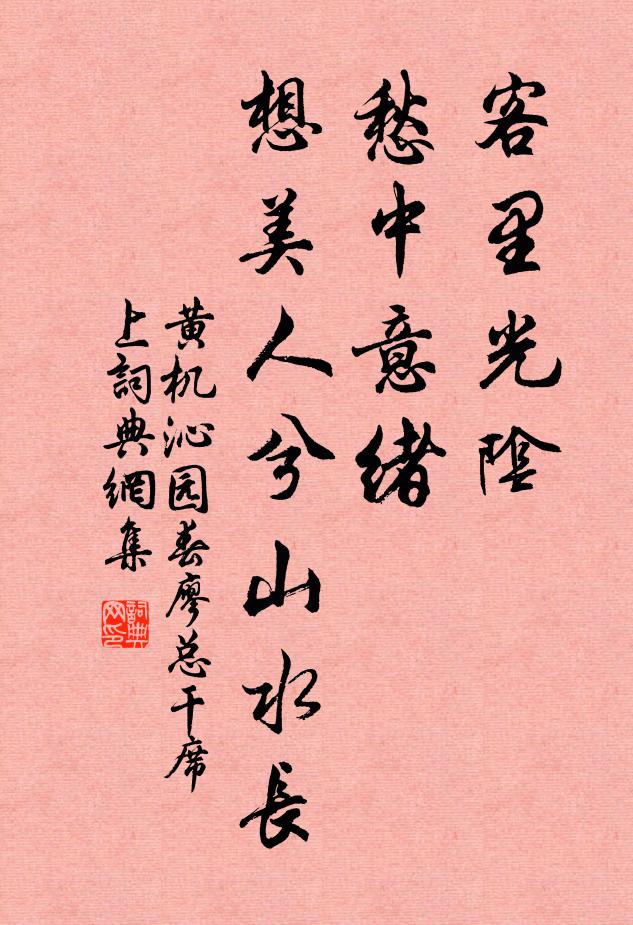 客里光陰
愁中意緒
想美人兮山水長
黄机沁园春廖总干席
上詞典網集
詞典
网印